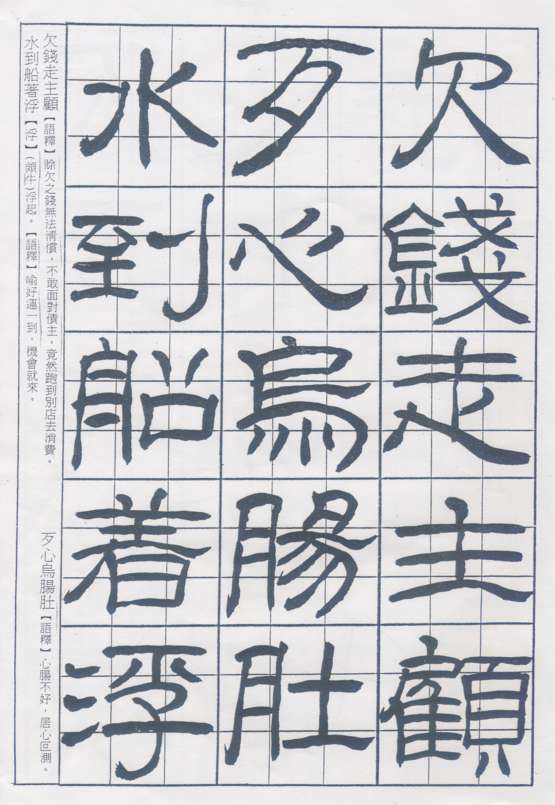 欠錢走主顧
歹心烏腸肚
水到船着浮
欠錢走主顧【語釋】賒欠之錢無法清償，不敢面對債主，竟然跑到別店去消費。
歹心烏腸肚【語釋】心腸不好，居心叵測。
水到船著浮【浮】(頗牛)浮起。【語釋】喻好運一到，機會就來。